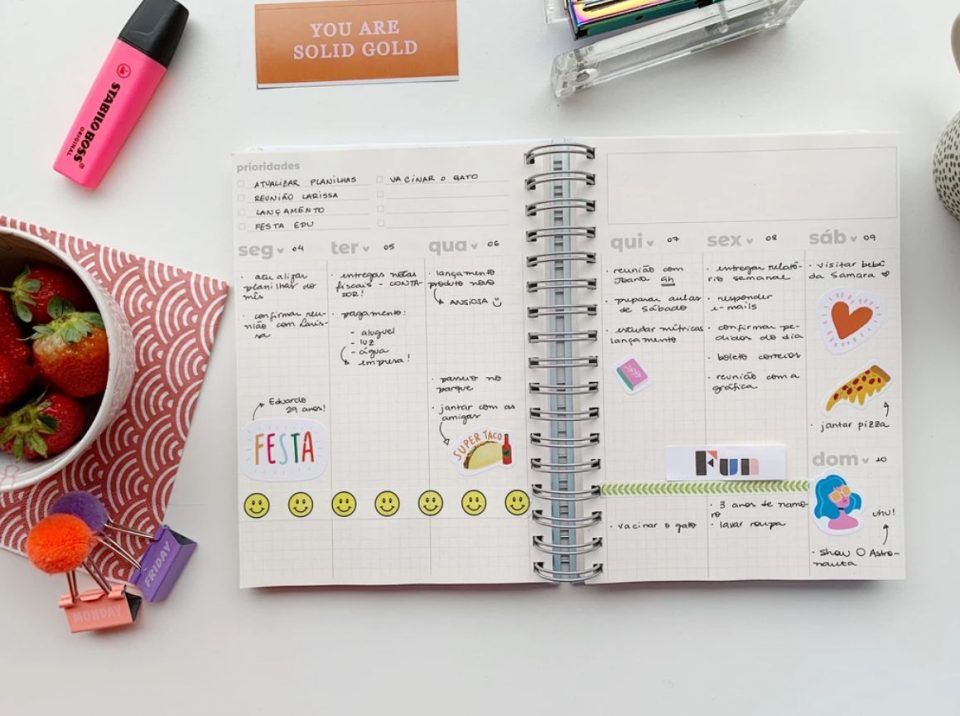 YOU ARE
SOLID GOLD
STABILO BOSS
ORIGINAL
prioridades
ATUALIZAR PLANILHAS
REUNIÃO LARISSA
LANÇAMENTO
FESTA EDU
VACINAR O GATO
seg 04
· atualizar
planilhas do
mês
· confirmar reu-
nião com Laris-
sa
Eduardo
29 anos!
FESTA
ter 05
· entregas notas
fiscais - CONTA-
DOR!
· pagamento:
- aluguel
- luz
- água
empresa!
qua 06
· lançamento
produto novo
ANSIOSA
· passeio no
parque
· jantar com as
amigas
SUPER TACO
qui 07
· reunião com
Joana 9h
· preparar aulas
de Sábado
· estudar métricas
lançamento
· vacinar o gato
sex 08
· entregar relató-
rio semanal
· responder
e-mails
· confirmar pe-
didos do dia
· boleto correios
· reunião com a
gráfica
Fun
· 3 anos de namo-
ro
· lavar roupa
sáb 09
· visitar bebê
da Samara
· jantar pizza
dom 10
uhu!
· show O Astro-
nauta
FRIDAY
MONDAY